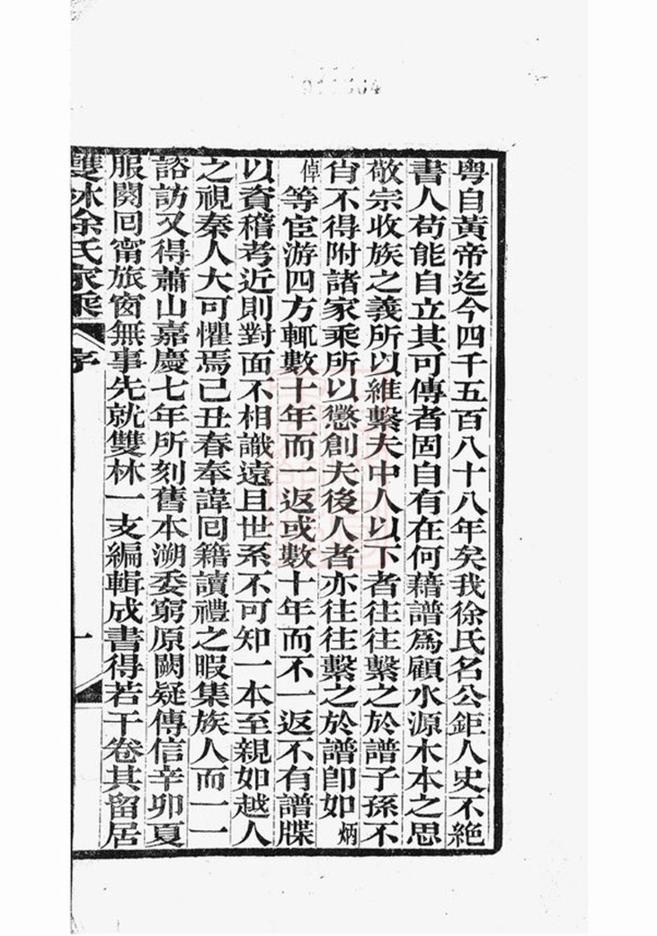 粵自黃帝迄今四千五百八十八年矣我徐氏名公鉅人史不絕
書人苟能自立其可傳者固自有在何藉譜爲顧水源木本之思
敬宗收族之義所以維繫夫中人以下者往往繫之於譜子孫不
肖不得附諸家乘所以懲創夫後人者亦往往繫之於譜卽如炳
倬等宦游四方輒數十年而一返或數十年而不一返不有譜牒
以資稽考近則對面不相識遠且世系不可知一本至親如越人
之視秦人大可懼焉己丑春奉諱囘籍讀禮之暇集族人而一一
諮訪又得蕭山嘉慶七年所刻舊本溯委窮原闕疑傳信辛卯夏
服闋囘甯旅窗無事先就雙林一支編輯成書得若干卷其留居
雙林徐氏家乘 序 一